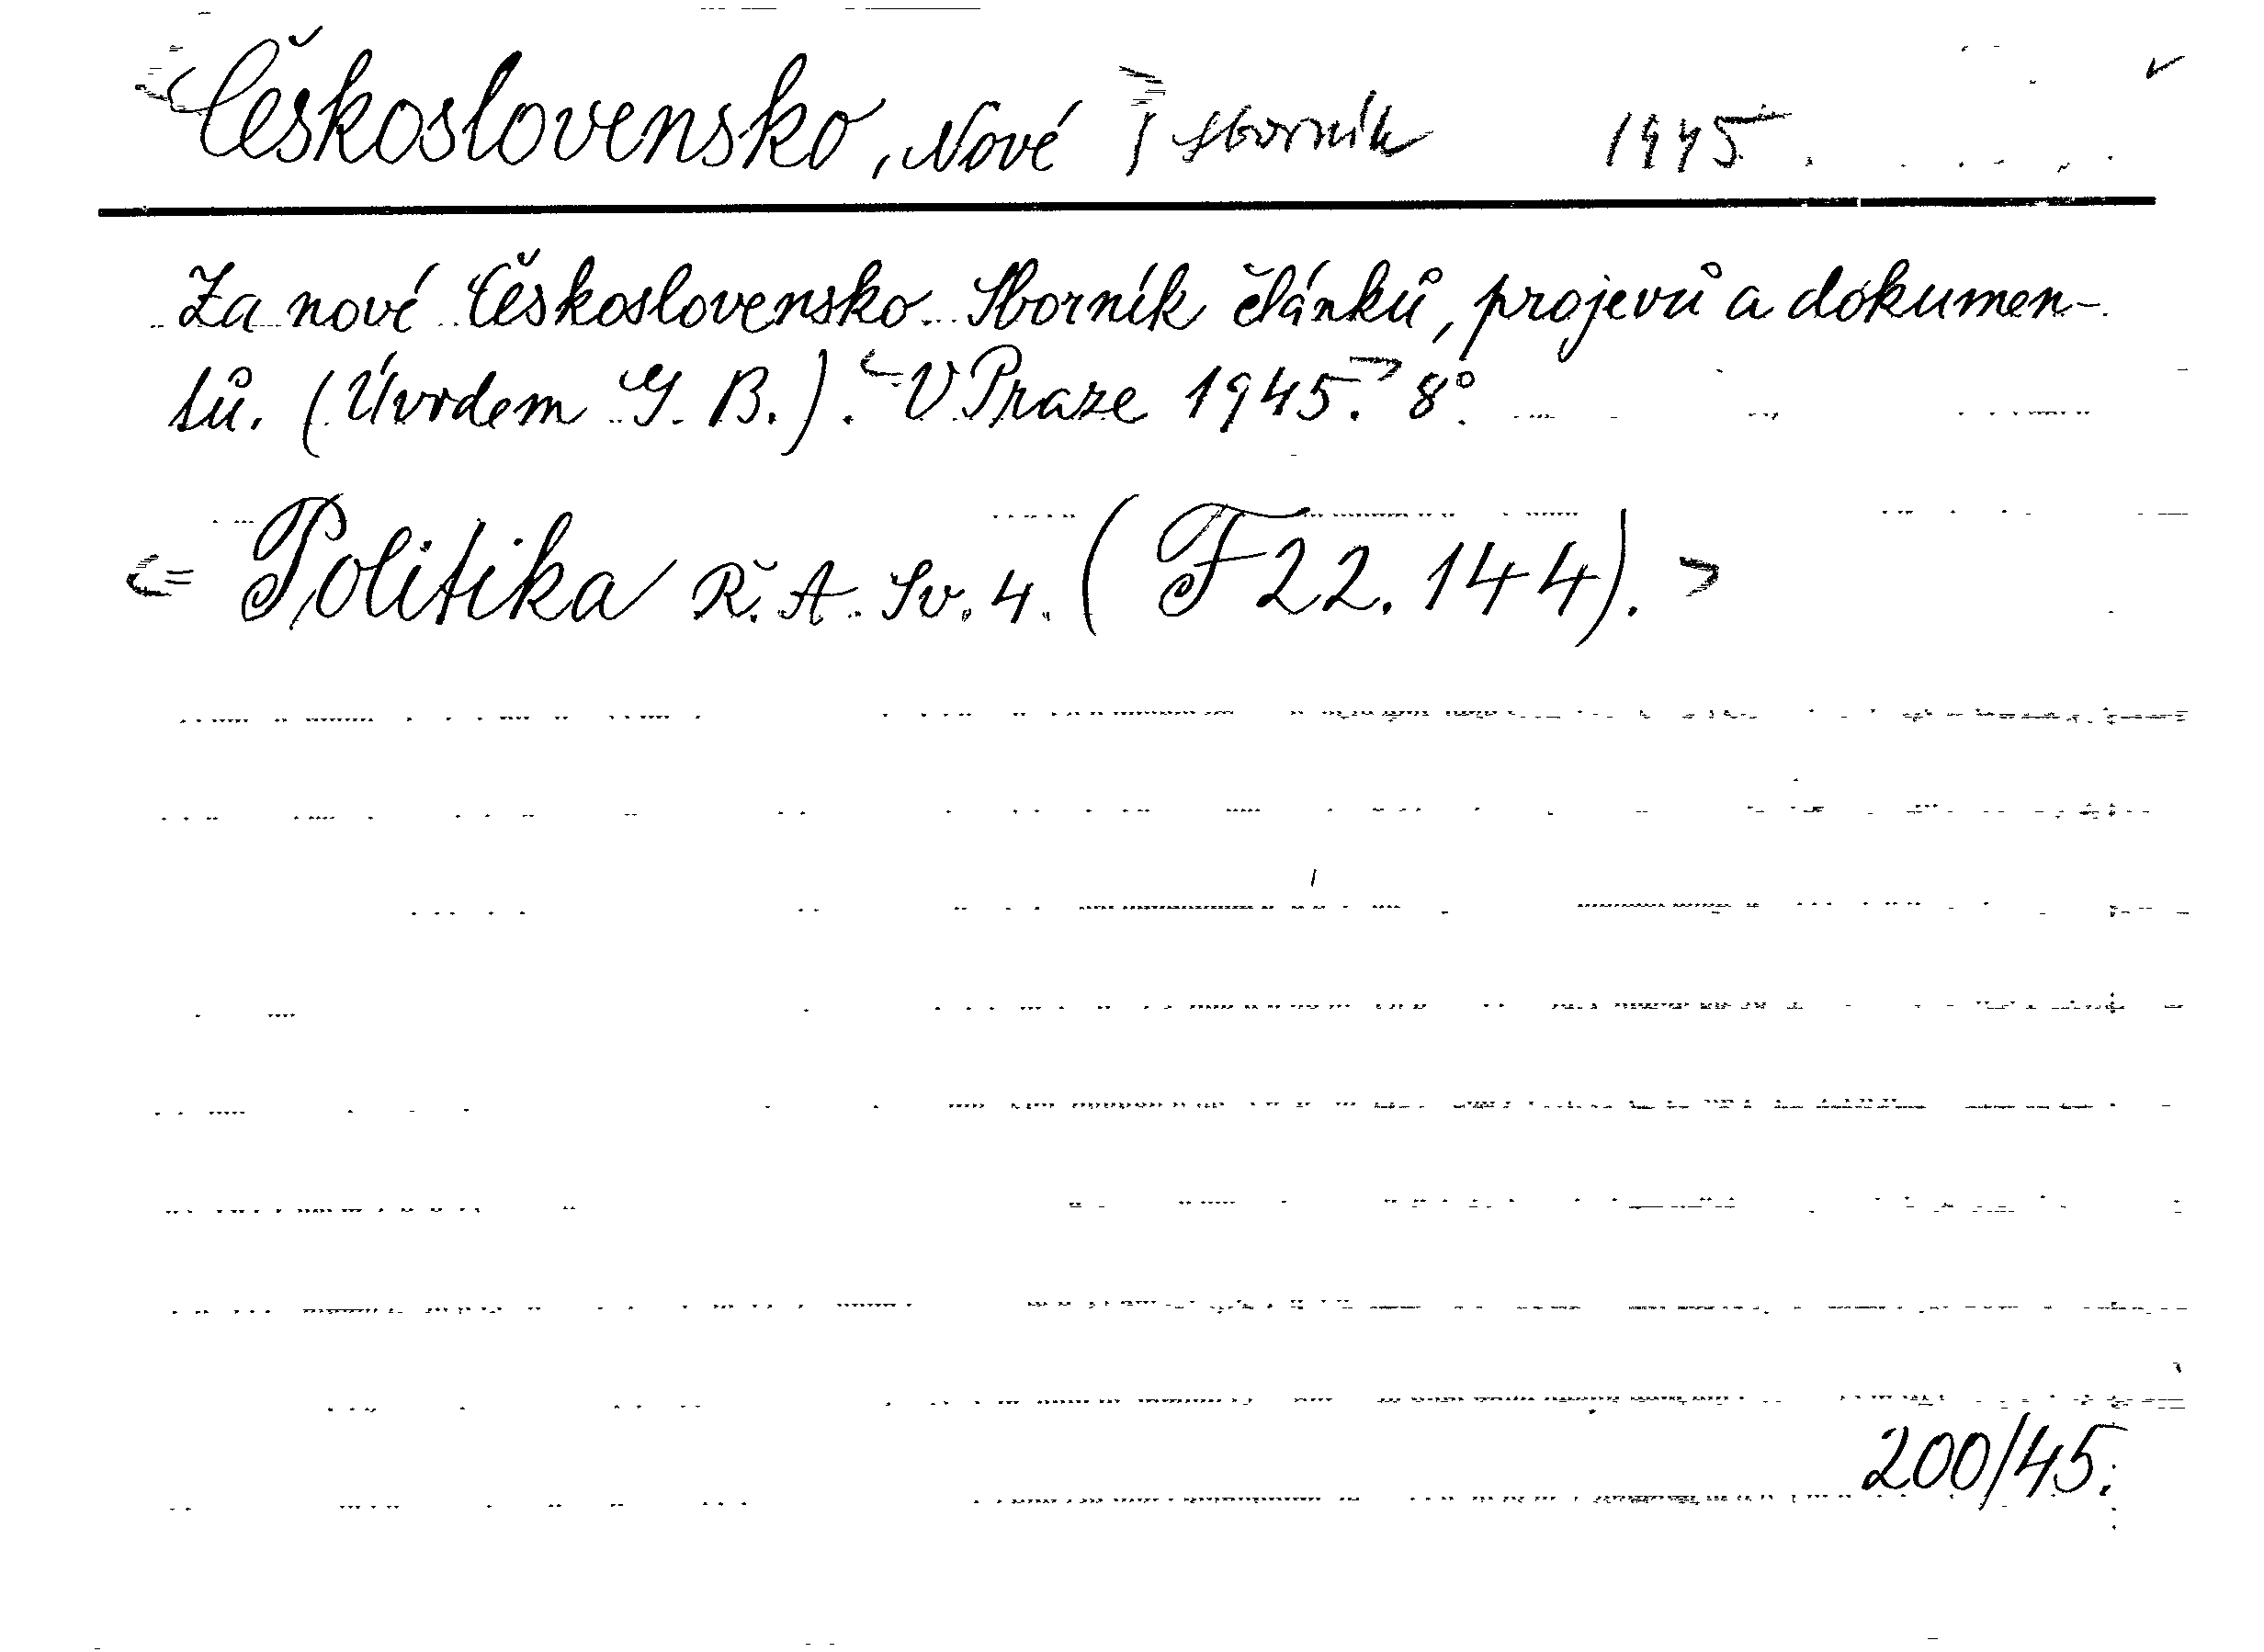 <Československo, Nové> , sborník 1945.
Za nové Československo. Sborník článků, projevů a dokumen-
tů. (Úvodem G. B.). <V Praze 1945.> 8°.
<= Politika Ř. A. Sv. 4. (F 22.144). >
200/45.